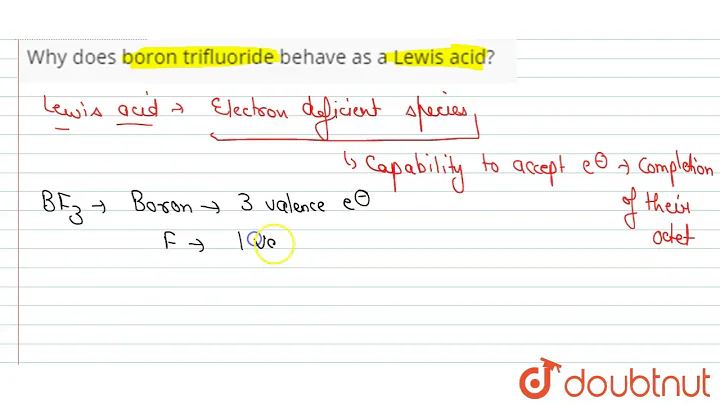 Why does boron trifluoride behave as a Lewis acid?
Lewis acid → Electron deficient species
↳ Capability to accept e⊖ → Completion
of their
octet
BF3 → Boron → 3 valence e⊖
F → 1 va
doubtnut